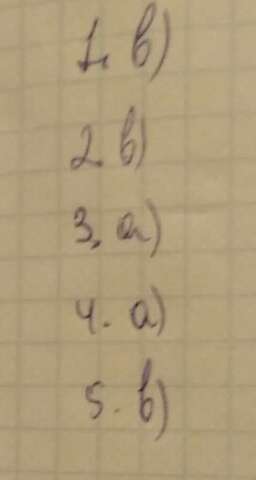 1. в)
2 в)
3. а)
4. а)
5. в)